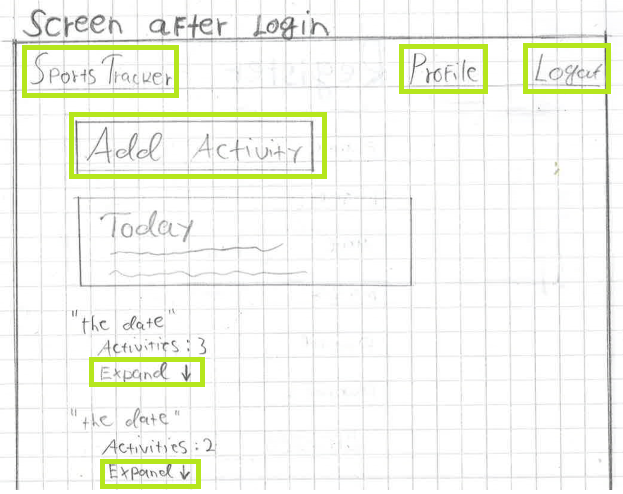 Screen after Login
Sports Tracker Profile Logout
Add Activity
Today
"the date"
Activities: 3
Expand ↓
"the date"
Activities: 2
Expand ↓